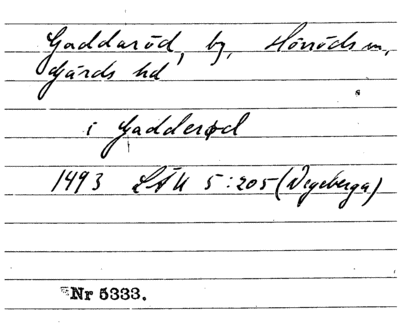 Gaddaröd, by, Hörröds sn,
Gärds hd
i Gadderød
1493 LÄU 5:205 (Degeberga)
Nr 5333.